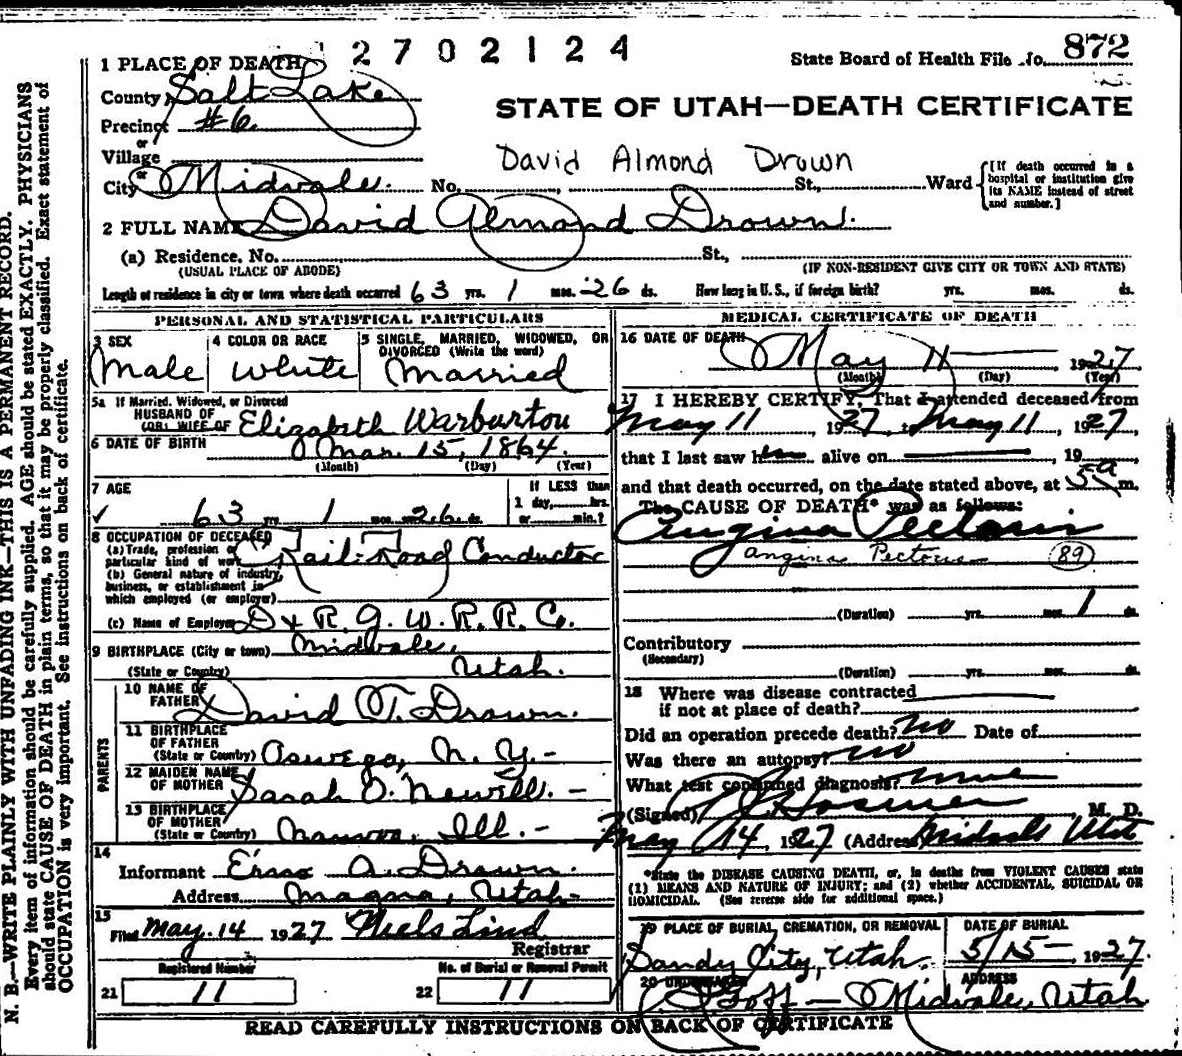 2702124
State Board of Health File No. 872
1 PLACE OF DEATH
County Salt Lake
STATE OF UTAH—DEATH CERTIFICATE
Precinct #6
or
Village
David Almond Drown
or
City Midvale. No. , St., Ward
[If death occurred in a hospital or institution give its NAME instead of street and number.]
2 FULL NAME David Almond Drown.
(a) Residence. No. St.,
(USUAL PLACE OF ABODE) (IF NON-RESIDENT GIVE CITY OR TOWN AND STATE)
Length of residence in city or town where death occurred 63 yrs. 1 mos. 26 ds. How long in U. S., if foreign birth? yrs. mos. ds.
PERSONAL AND STATISTICAL PARTICULARS
3 SEX
Male
4 COLOR OR RACE
White
5 SINGLE, MARRIED, WIDOWED, OR
DIVORCED (Write the word)
Married
5a If Married, Widowed, or Divorced
HUSBAND OF
(OR) WIFE OF Elizabeth Warburton
6 DATE OF BIRTH Mar. 15, 1864.
(Month) (Day) (Year)
7 AGE
63 yrs. 1 mos. 26 ds.
If LESS than
1 day, hrs.
or min.?
8 OCCUPATION OF DECEASED
(a) Trade, profession or
particular kind of work Rail-Road Conductor
(b) General nature of industry,
business, or establishment in
which employed (or employer)
(c) Name of Employer D & R. G. W. R. R. Co.
9 BIRTHPLACE (City or town) Midvale,
(State or Country) Utah.
PARENTS
10 NAME OF
FATHER David T. Drown.
11 BIRTHPLACE
OF FATHER
(State or Country) Oswego, N. Y. -
12 MAIDEN NAME
OF MOTHER Sarah D. Newell. -
13 BIRTHPLACE
OF MOTHER
(State or Country) Nauvoo, Ill. -
14
Informant A. Drown.
Address Magna, Utah-
15
Filed May. 14 1927 Niels Lind
Registrar
Registered Number No. of Burial or Removal Permit
21 11 22 11
MEDICAL CERTIFICATE OF DEATH
16 DATE OF DEATH
May 11 1927
(Month) (Day) (Year)
17 I HEREBY CERTIFY, That I attended deceased from
May 11 1927, to May 11, 1927,
that I last saw him alive on , 19
and that death occurred, on the date stated above, at 5 a m.
The CAUSE OF DEATH* was as follows:
Angina Pectoris
angina Pectoris 89
(Duration) yrs. mos. 1 ds.
Contributory
(Secondary)
(Duration) yrs. mos. ds.
18 Where was disease contracted
if not at place of death?
Did an operation precede death? no Date of
Was there an autopsy? no
What test confirmed diagnosis? none
(Signed) Hosmer M. D.
May 14, 1927 (Address) Midvale Utah
*State the DISEASE CAUSING DEATH, or, in deaths from VIOLENT CAUSES state
(1) MEANS AND NATURE OF INJURY; and (2) whether ACCIDENTAL, SUICIDAL OR
HOMICIDAL. (See reverse side for additional space.)
19 PLACE OF BURIAL, CREMATION, OR REMOVAL
Sandy City, Utah.
DATE OF BURIAL
5/15- 1927.
20 UNDERTAKER ADDRESS
Goff — Midvale, Utah
READ CAREFULLY INSTRUCTIONS ON BACK OF CERTIFICATE
N. B.—WRITE PLAINLY WITH UNFADING INK—THIS IS A PERMANENT RECORD.
Every item of information should be carefully supplied. AGE should be stated EXACTLY. PHYSICIANS
should state CAUSE OF DEATH in plain terms, so that it may be properly classified. Exact statement of
OCCUPATION is very important. See instructions on back of certificate.